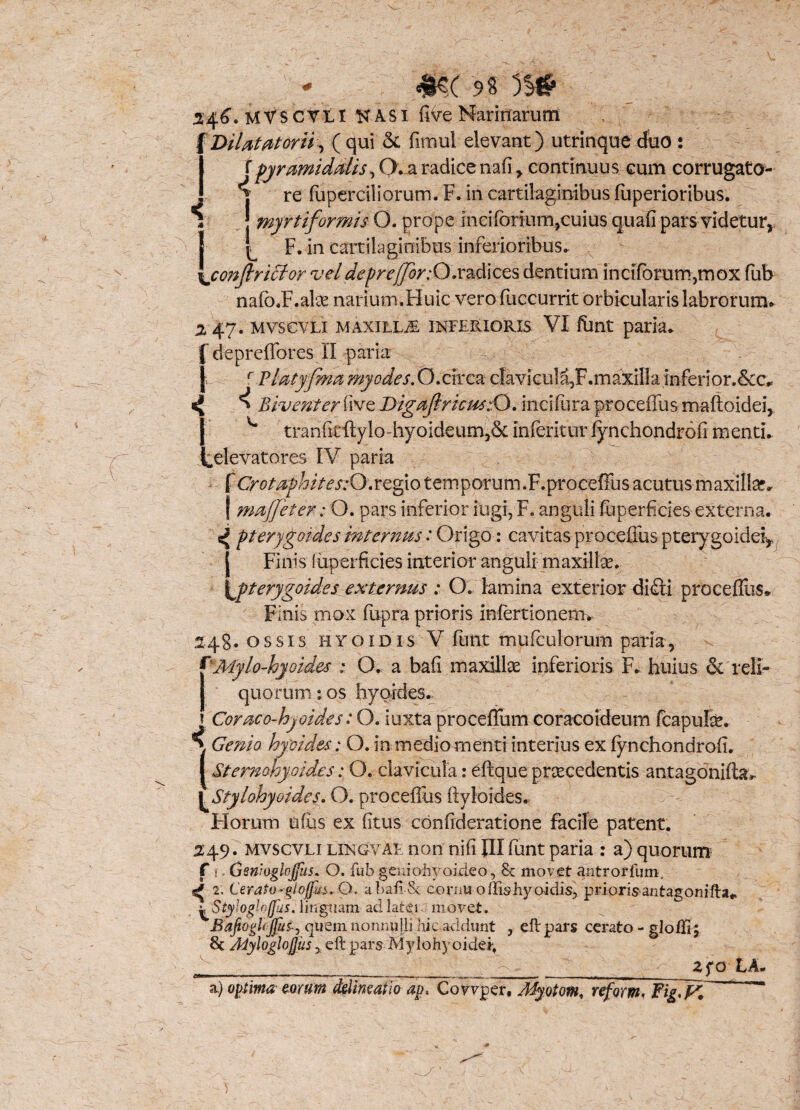 98
246. MVSCVLI NASI ſive Narinarum
Dilatatorii, (qui & ſimul elevant) utrinque duo:
pyramidalis, O. a radice naſi, continuus cum corrugato-
re ſuperciliorum. F. in cartilaginibus ſuperioribus.
myrtiformis O. prope inciſorium,cuius quaſi pars videtur,
F. in cartilaginibus inferioribus.
conſtrictor vel depreſſor:O.radices dentium inciſorum,mox ſub
naſo.F.alæ narium.Huic vero ſuccurrit orbicularis labrorum.
247. MVSCVLI MAXILLÆ INFERIORIS VI ſunt paria.
depreſſores II paria
Platyſma myodes.O.circa clavicula,F.maxilla inferior.&c.
Biventer ſive Digaſtricus:O. inciſura proceſſus maſtoidei,
tranſit ſtylo-hyoideum,& inſeritur ſynchondroſi menti.
elevatores IV paria
Crotaphites:O.regio temporum.F.proceſſus acutus maxillæ.
maſſeter: O. pars inferior iugi, F. anguli ſuperficies externa.
pterygoides internus: Origo: cavitas proceſſus pterygoidei,
Finis ſuperficies interior anguli maxillæ.
pterygoides externus: O. lamina exterior dicti proceſſus.
Finis mox ſupra prioris inſertionem.
248. OSSIS HYOIDIS V ſunt muſculorum paria,
Mylo-hyoides: O. a baſi maxillæ inferioris F. huius & reli-
quorum: os hyoides.
Coraco-hyoides: O. iuxta proceſſum coracoideum ſcapulæ.
Genio hyoides: O. in medio menti interius ex ſynchondroſi.
Sternohyoides: O. clavicula: eſtque præcedentis antagoniſta.
Stylohyoides. O. proceſſus ſtyloides.
Horum uſus ex ſitus conſideratione facile patent.
249. MVSCVLI LINGVAE non niſi III ſunt paria: a) quorum
1. Genioglosſus. O. ſub geniohyoideo, & movet antrorſum.
2. Cerato-gloſſus. O. a baſi & cornu oſſis hyoidis, prioris antagoniſta.
Stylogloſſus. linguam ad latera movet.
Baſiogloſſus, quem nonnulli hic addunt, eſt pars cerato-gloſſi;
& Mylogloſſus, eſt pars Mylohyoidei,
250 LA-
a) optima eorum delineatio ap. Covvper. Myotom. reform. Fig. V.